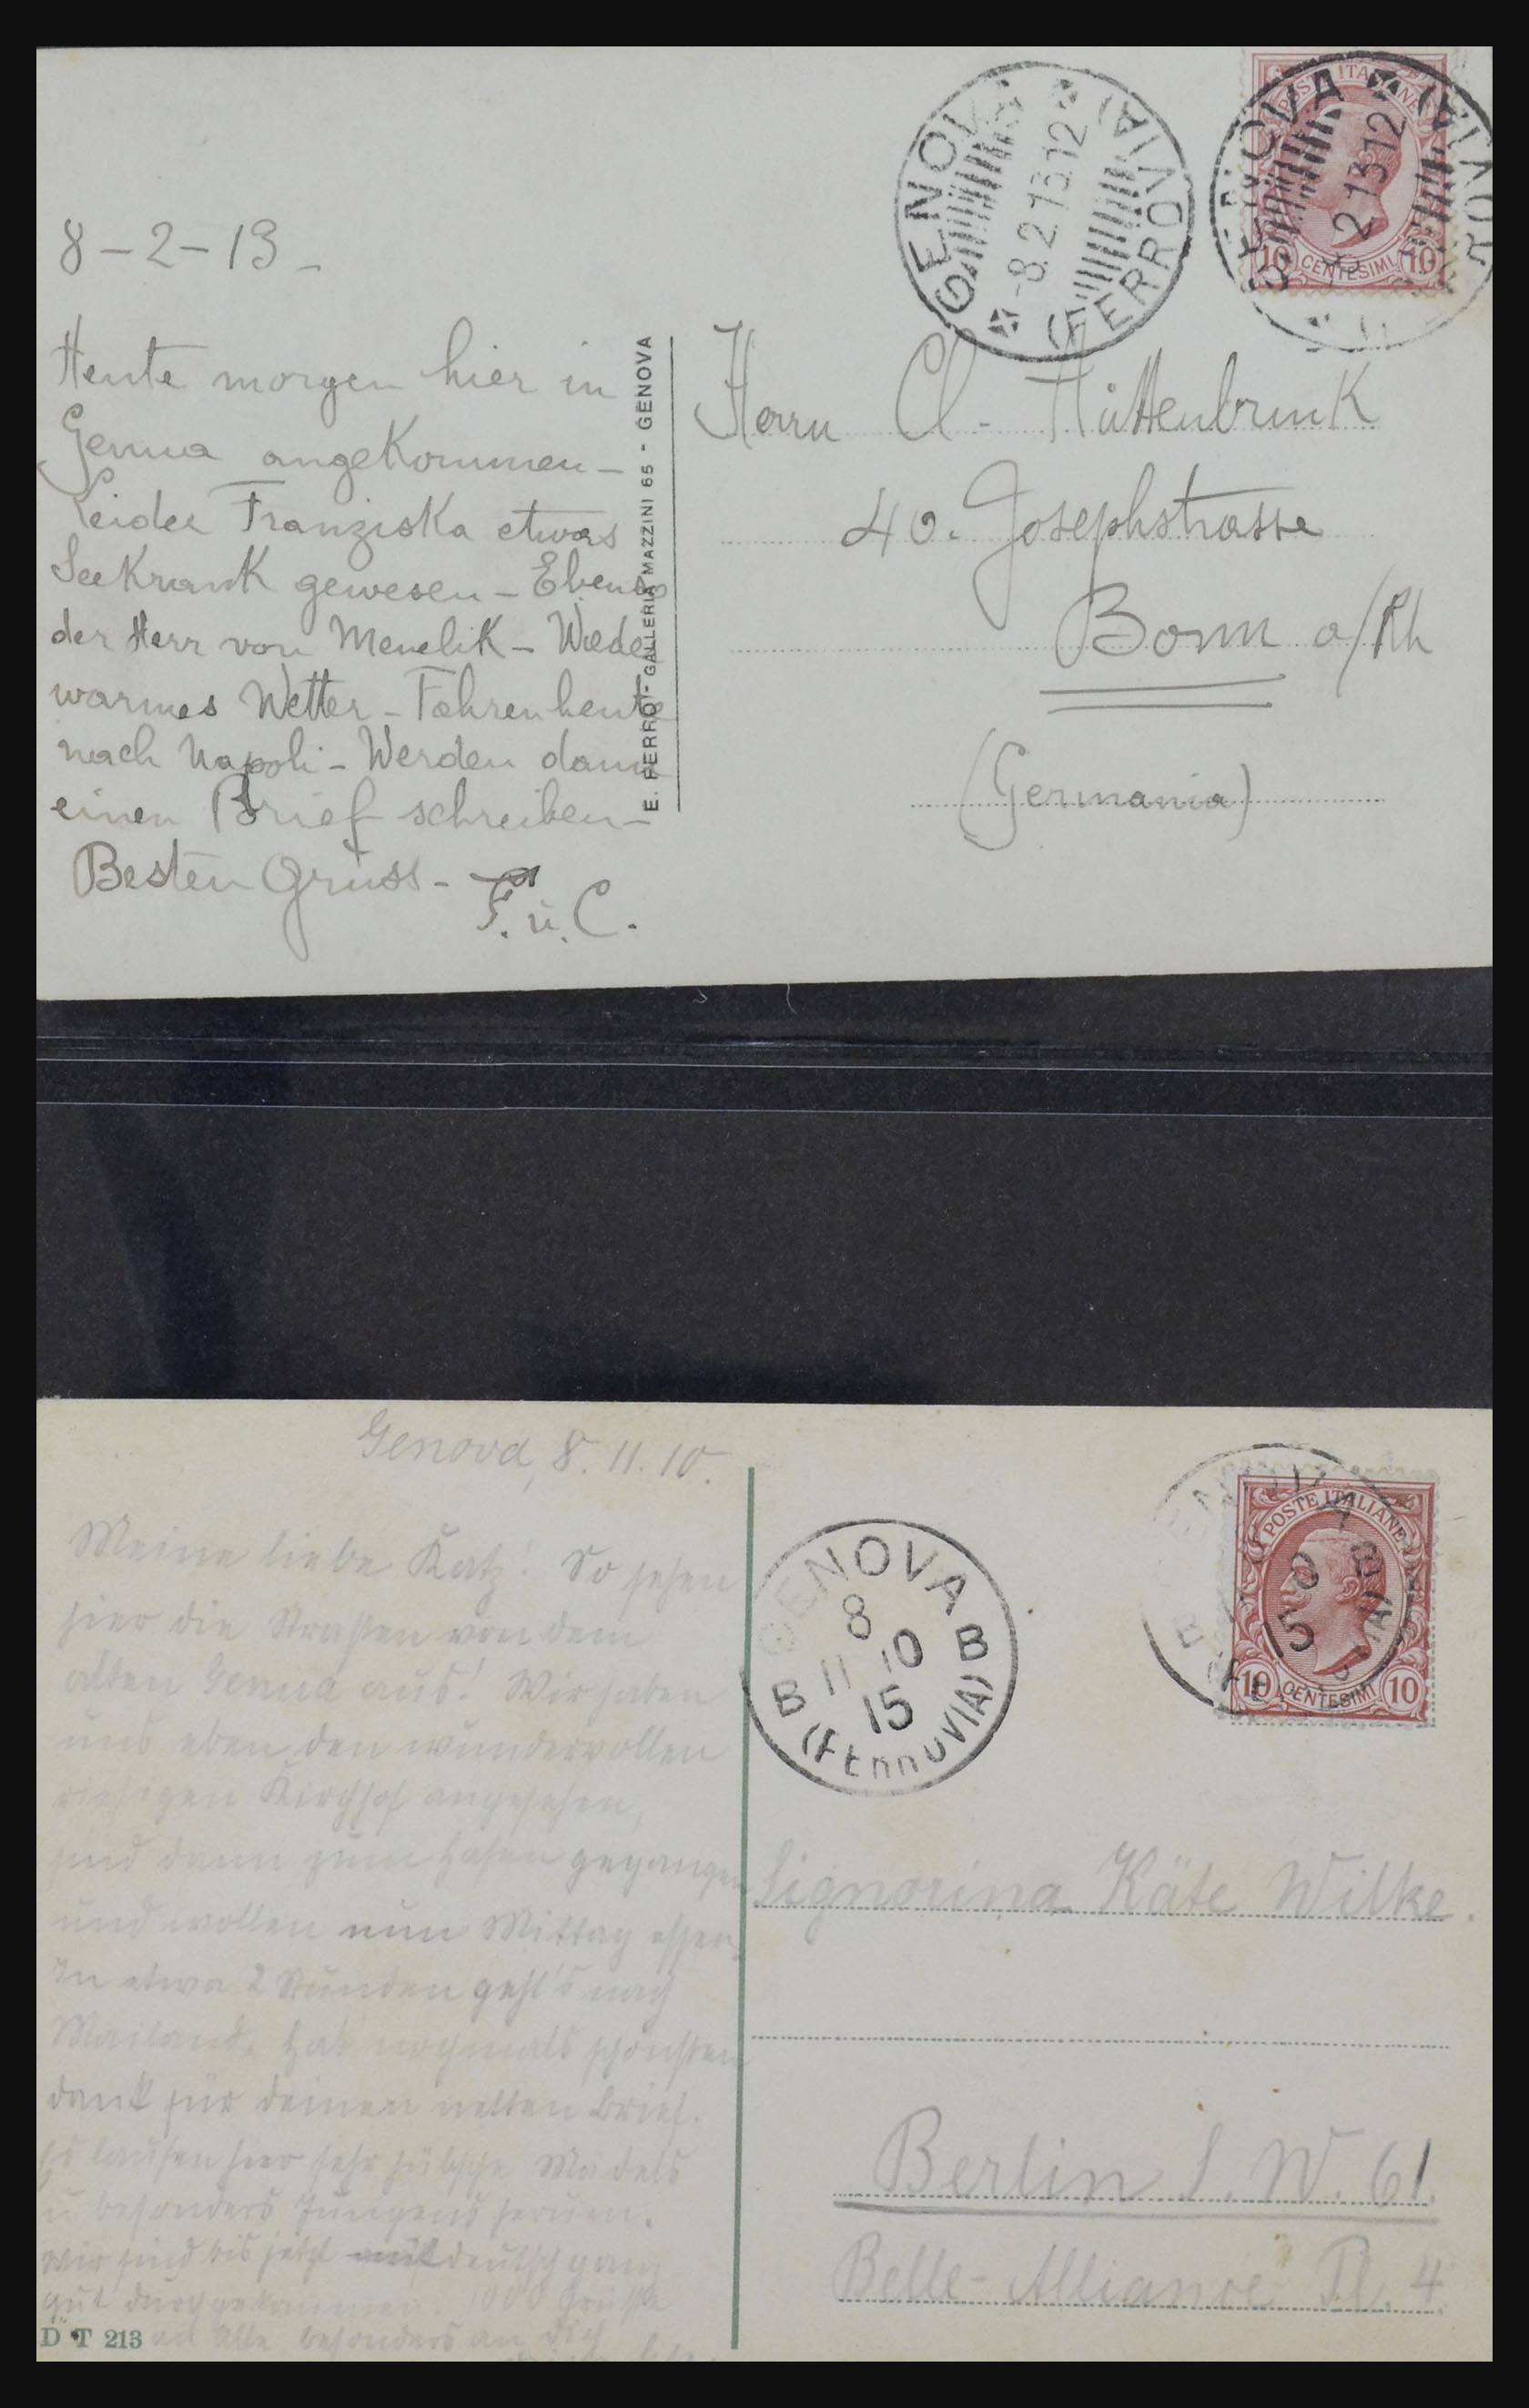 8-2-13-
Heute morgen hier in
Genua angekommen-
Leider Franziska etwas
Seekrank gewesen - Ebenso
der Herr von Menelik -
warmes Wetter - Fahren heute
nach Napoli - Werden dann
einen Brief schreiben-
Besten Gruss -
F. u. C.
E. FERRO - GALLERIA MAZZINI 65 - GENOVA
GENOVA
-8.2.13.12
(FERROVIA)
POSTE ITALIANE
10 CENTESIMI 10
GENOVA
2 13 12
Herrn Cl. Hüttenbrink
40. Josephstrasse
Bonn a/Rh
(Germania)
Genova, 8.11.10.
Meine liebe Katz! So sehen
hier die Straßen von dem
alten Genua aus! Wir haben
uns eben den wundervollen
riesigen Kirchhof angesehen,
sind dann zum Hafen gegangen
und wollen nun Mittag essen.
In etwa 2 Stunden geht's nach
Mailand. Hab nochmals schönsten
Dank für deinen netten Brief.
Es laufen hier sehr hübsche Mädels
u besonders Jungens herum.
Wir sind bis jetzt mit deutsch ganz
gut durchgekommen. 1000 Grüße
an Alle, besonders an Dich
D T 213
GENOVA
8
11 10
15
B B
(FERROVIA)
POSTE ITALIANE
10 CENTESIMI 10
Signorina Käte Wilke.
Berlin S.W. 61.
Belle-Alliance Pl. 4